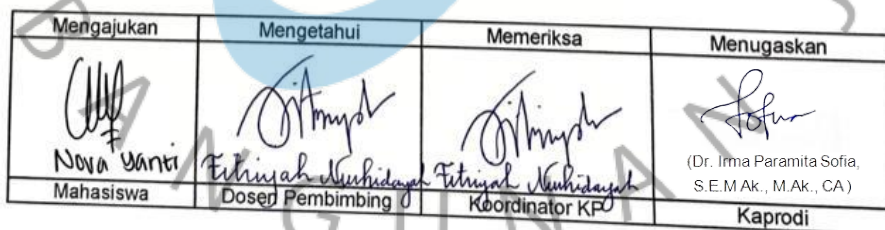 Mengajukan Mengetahui Memeriksa Menugaskan
Nova yanti Fitriyah Nurhidayah Fitriyah Nurhidayah (Dr. Irma Paramita Sofia,
S.E.M Ak., M.Ak., CA )
Mahasiswa Dosen Pembimbing Koordinator KP Kaprodi